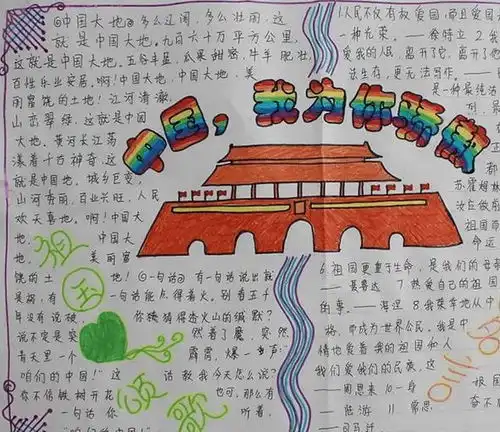 中国，我为你骄傲
祖国颂歌
◎中国大地◎多么辽阔，多么壮丽，这
就是中国大地。九百六十万平方公里，
这就是中国大地。五谷丰登，瓜果甜密，牛羊肥壮，
百姓乐业安居。啊！中国大地，中国大地，美
丽富饶的土地！江河清澈，
山峦翠绿，这就是中国
大地、黄河长江荡
漾着千古神奇，这
就是中国地，城乡巨变，
山河秀丽，百业兴旺，人民
欢天喜地。啊！中国大
地，中国大
地，美丽富
饶的土地！◎一句话◎有一句话说出就
是祸，有一句话能点得着火，别看五千
年没有说破，你猜得透火山的缄默？
说不定是突然着了魔，突然
青天里一个霹雳，爆一声：“
咱们的中国！”这话教我今天怎么说？
你不信铁树开花也可，那么有
一句话你听着，
“咱们的中国！”
1.人民不仅有权爱国，而且爱国
一种光荣。——徐特立 2.我
爱我的人民，离开了它，离开了他
法生存，更无法写作。——
是一种最纯洁
正
都
苏霍姆林
汝在做
祖国
命运
6.祖国更重于生命，是我们的母
7.热爱自己的祖国
的事。——海涅 8.我荣幸地从中
裕，中成为世界公民。我是中
情地爱着我的祖国和人
我们爱我们的民族，这
——周恩来 10.一身报国
——陆游 11.常思奋不
——司马迁